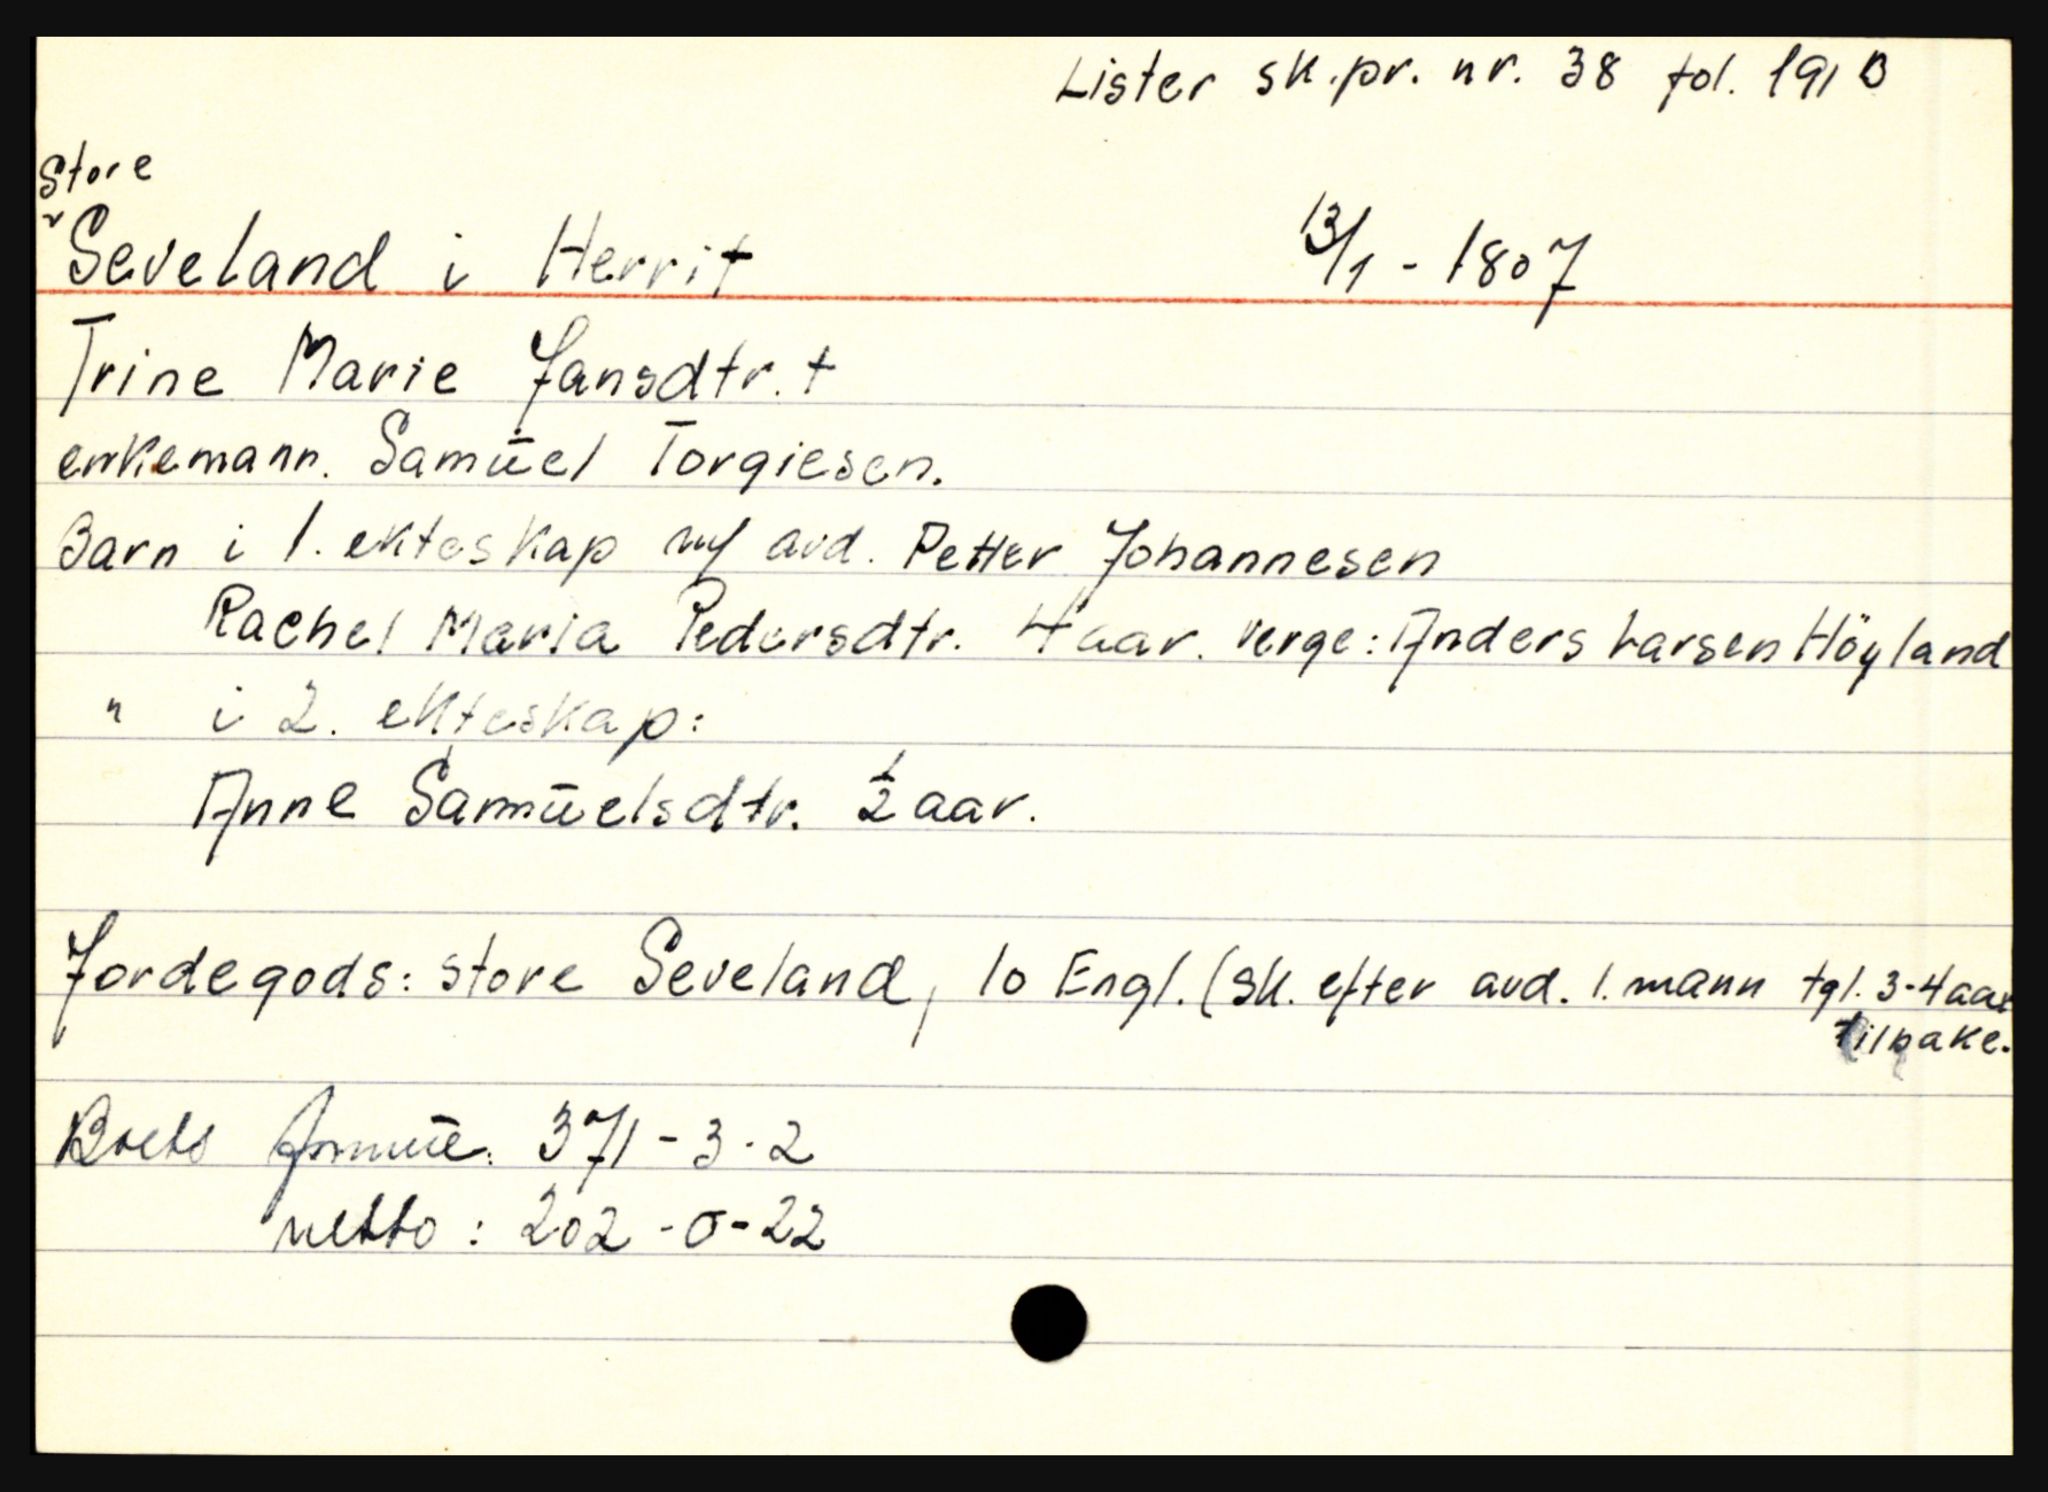 Lister sk.pr. nr. 38 fol. 191 B
Store
Seveland i Herrit 13/1 - 1807
Trine Marie Jansdtr. †
enkemann. Samŭel Torgiesen.
Barn i 1. ekteskap m/ avd. Petter Johannesen
Rachel Maria Pedersdtr. 4 aar. verge: Anders Larsen Höyland
" i 2. ekteskap:
Anne Samŭelsdtr. ½ aar.
Jordegods: store Seveland, 10 Engl. (sk. efter avd. 1. mann tgl. 3-4 aar
tilbake.
Boets formŭe: 371 - 3 - 2
netto: 202 - 0 - 22